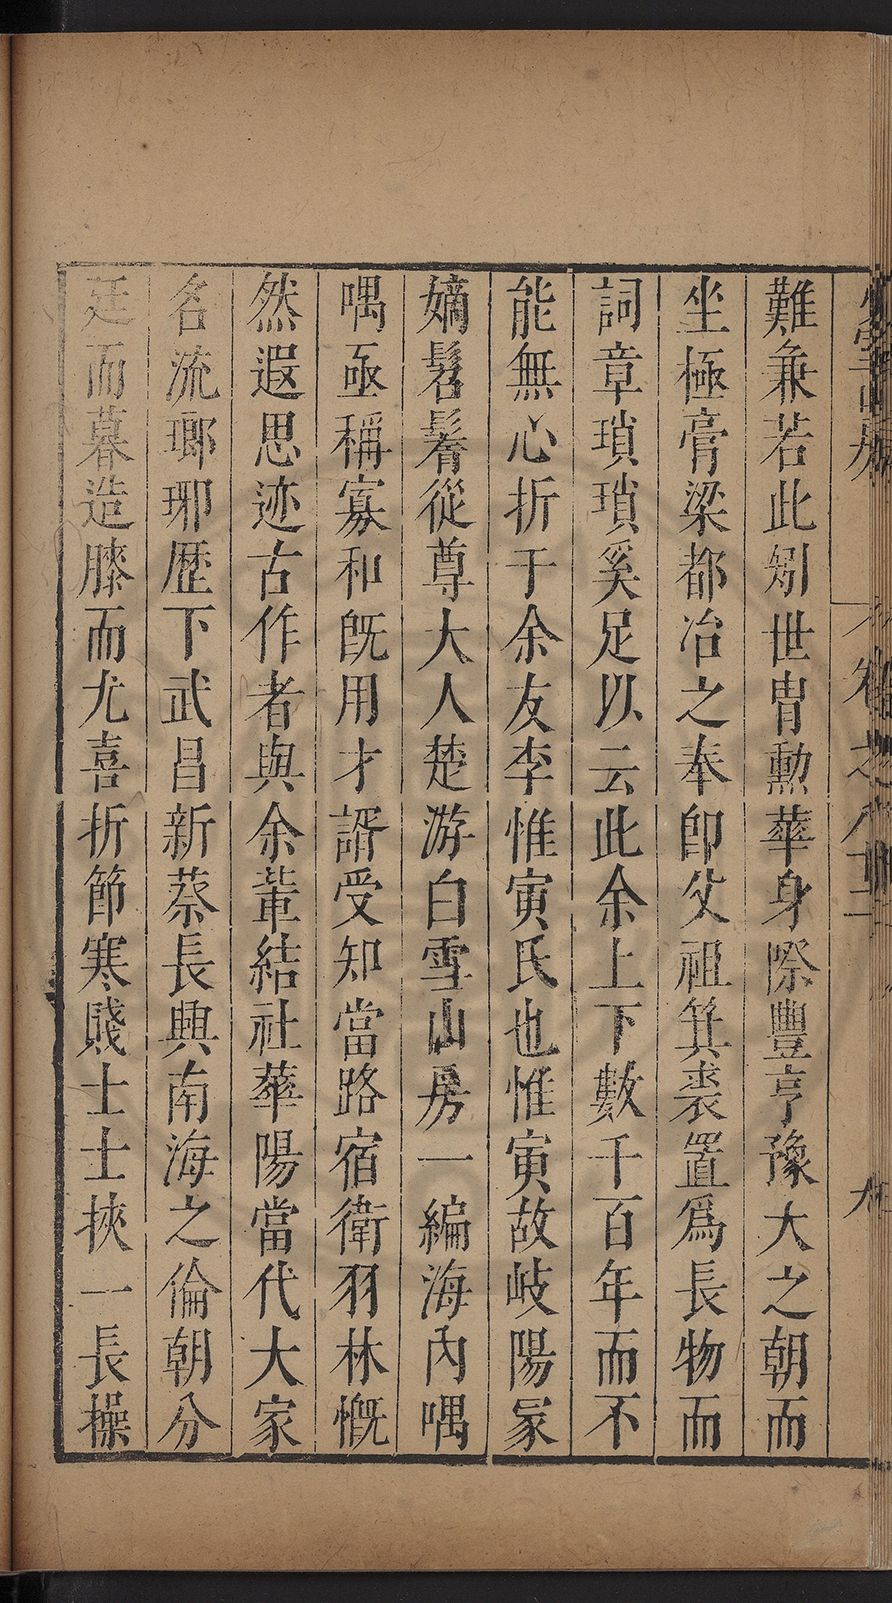 難兼若此矧世胄勲華身際豐亨豫大之朝而
坐極膏粱都冶之奉卽父祖箕裘置爲長物而
詞章瑣瑣奚足以云此余上下數千百年而不
能無心折于余友李惟寅氏也惟寅故岐陽冡
嫡髫鬌從尊大人楚游白雪山房一編海內喁
喁亟稱寡和旣用才諝受知當路宿衛羽林慨
然遐思迹古作者與余軰結社華陽當代大家
名流瑯琊歷下武昌新蔡長興南海之倫朝分
廷而暮造膝而尤喜折節寒賤士士挾一長操